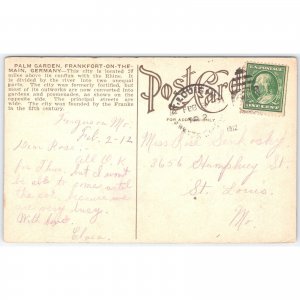 PALM GARDEN, FRANKFORT-ON-THE-
MAIN, GERMANY.—This city is located 19
miles above its conflux with the Rhine. It
is divided by the river into two unequal
parts. The city was formerly fortified, but
most of its outworks are now converted into
gardens and promenades, as shown on the
opposite side. The principal streets are
wide. The city was founded by the Franks
in the fifth century.
Ferguson Mo.
Feb. 2-12
Dear Rose:
all O.K.
for Thur. but I won't
be able to come until
the because we
are very busy.
With love
Post Card
FOR ADDRESS ONLY
FEB
1912
ONE CENT
Miss Rose
3656 Humphrey St.
St. Louis
Mo.